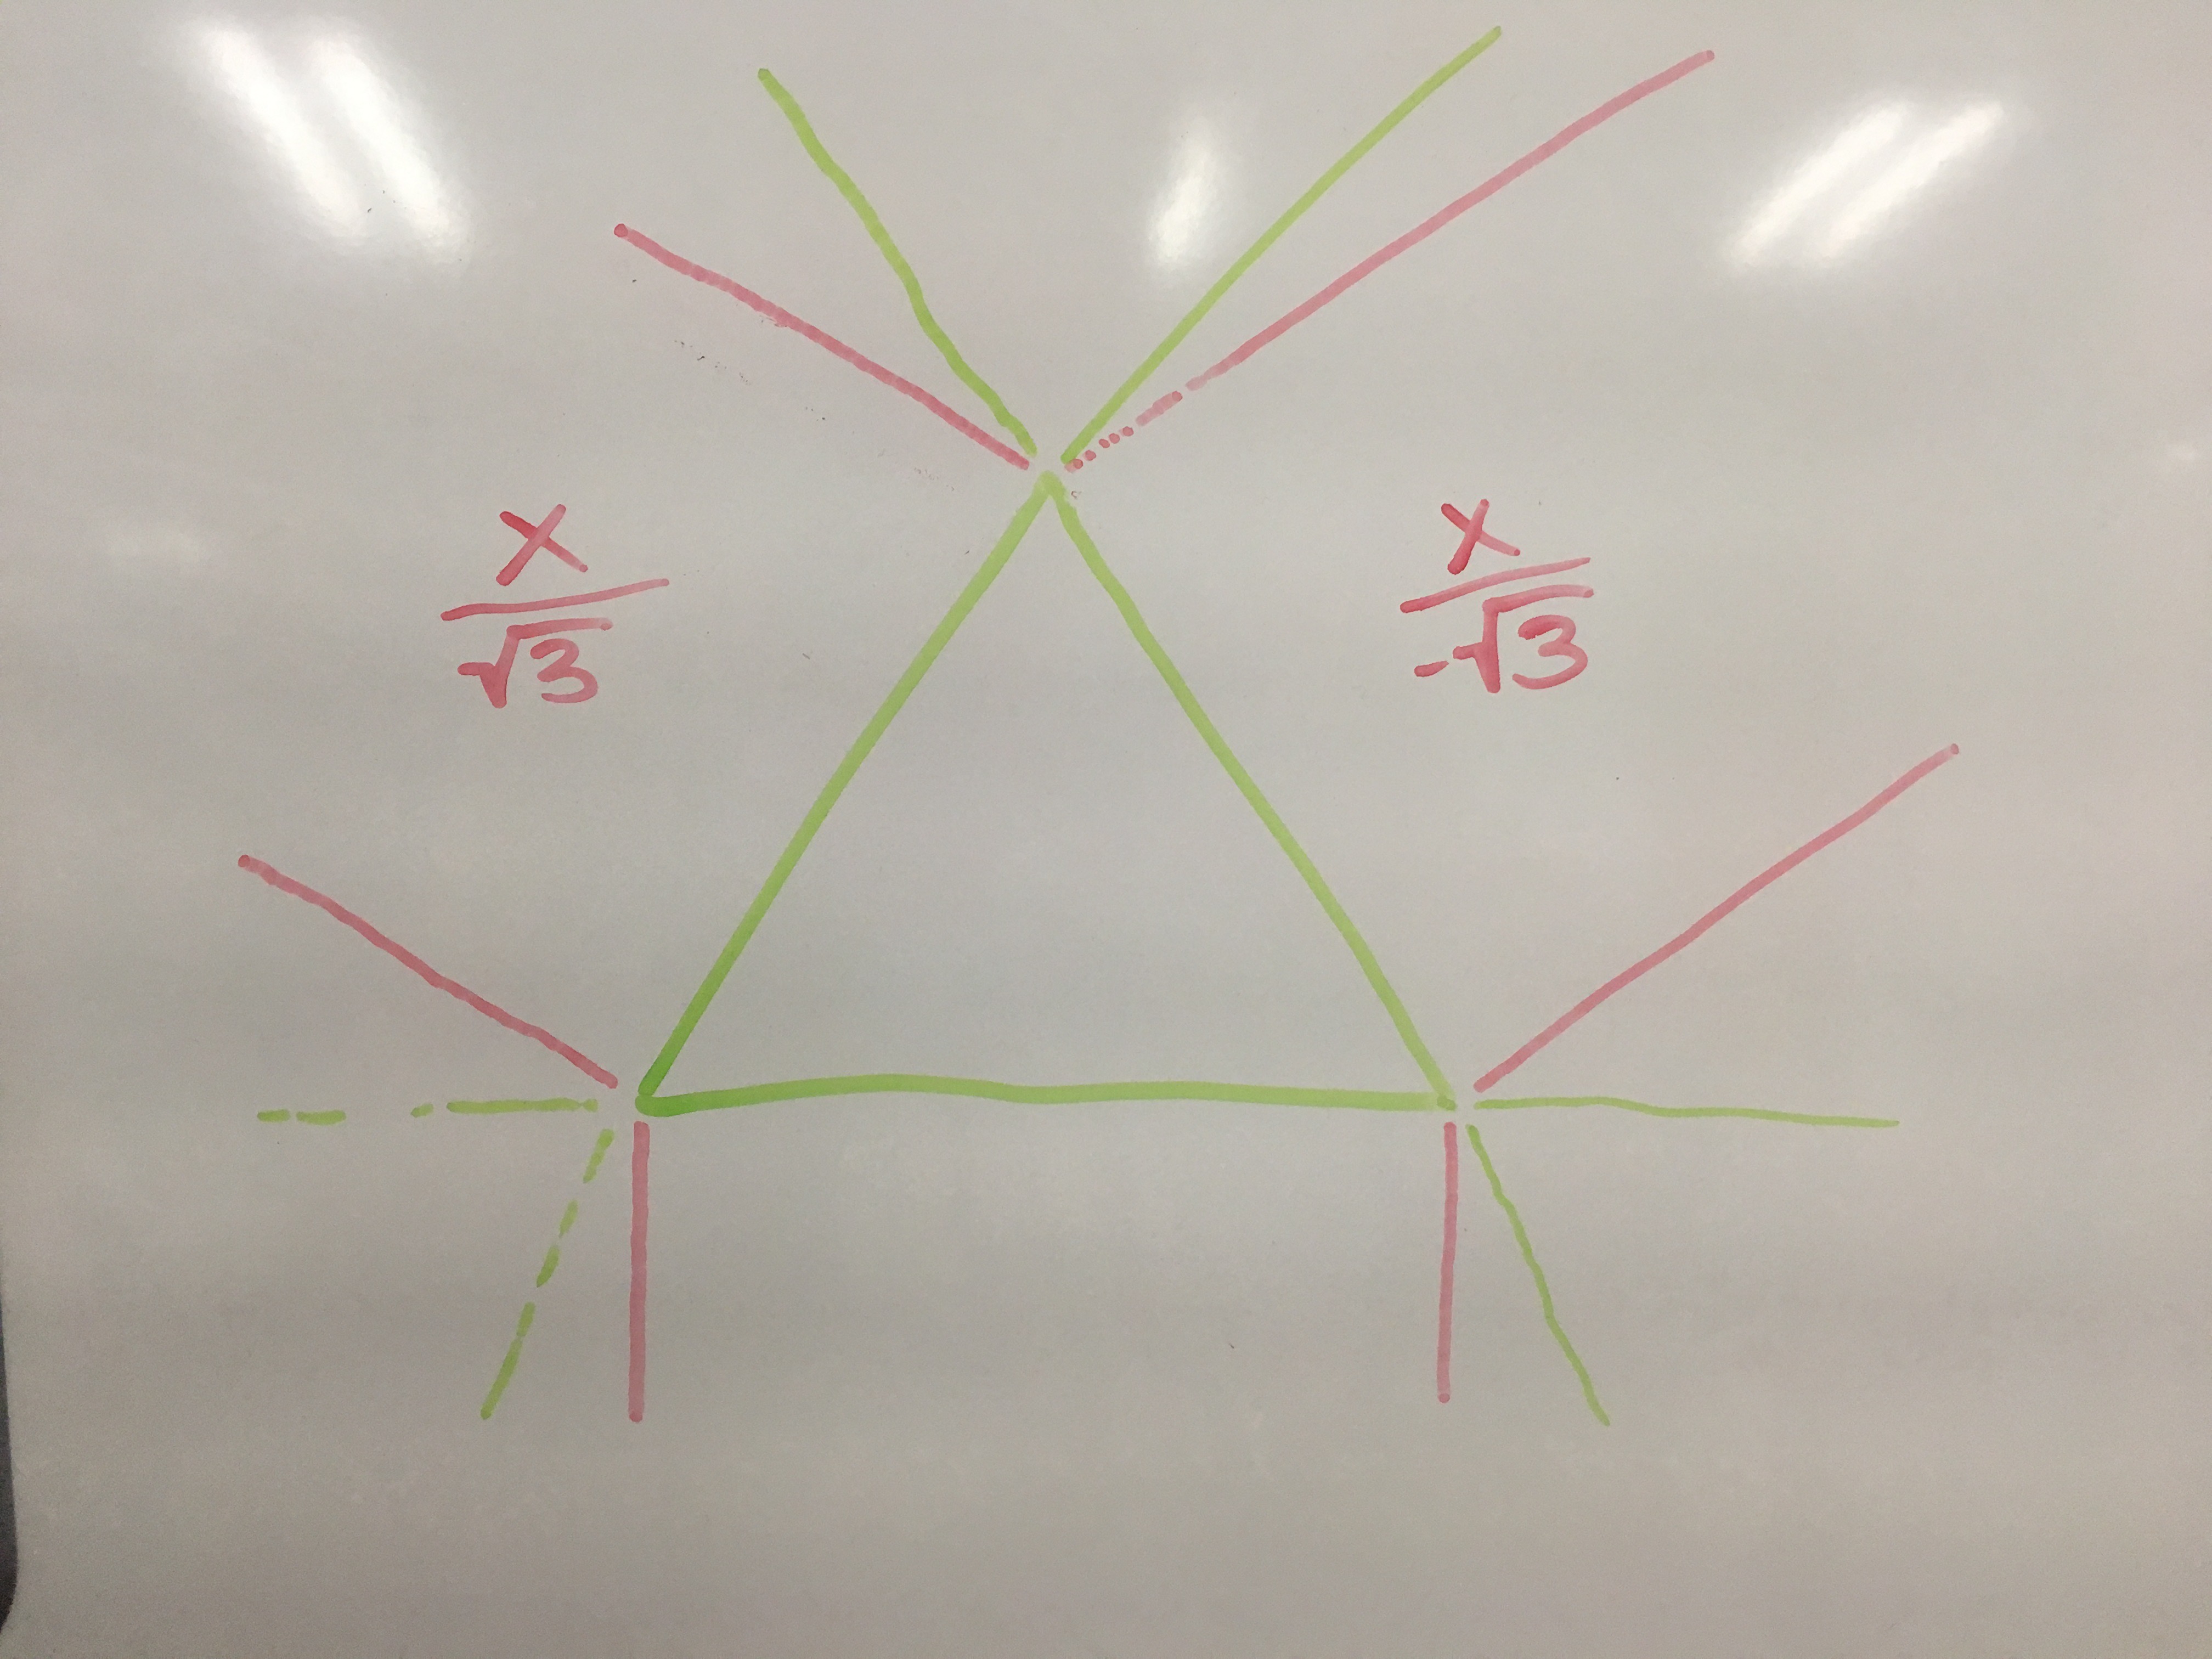 x/√3
x/-√3